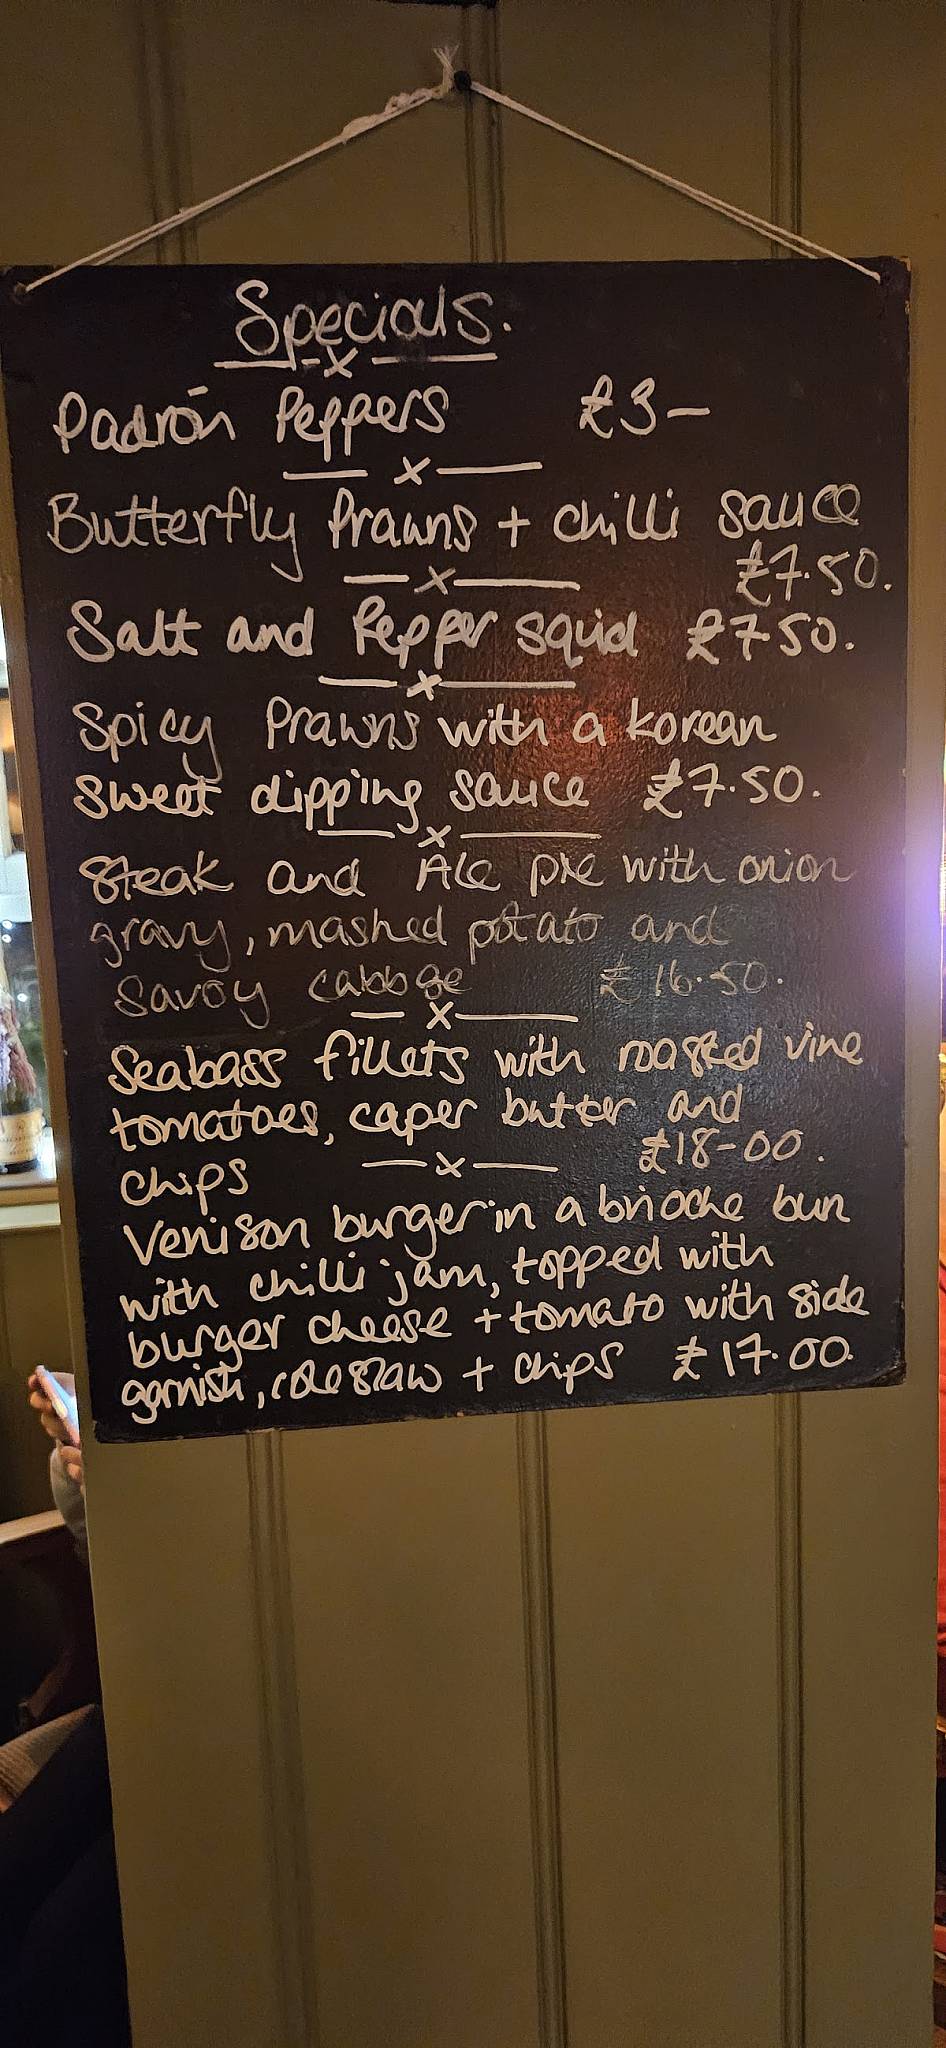 Specials.
Padrón Peppers £3-
Butterfly Prawns + chilli sauce
£7.50.
Salt and Pepper squid £7.50.
Spicy Prawns with a korean
sweet dipping sauce £7.50.
Steak and Ale pie with onion
gravy, mashed potato and
Savoy cabbge £16.50.
Seabass fillets with roasted vine
tomatoes, caper butter and
chips £18-00.
Venison burger in a brioche bun
with chilli jam, topped with
burger cheese + tomato with side
garnish, coleslaw + chips £17.00.